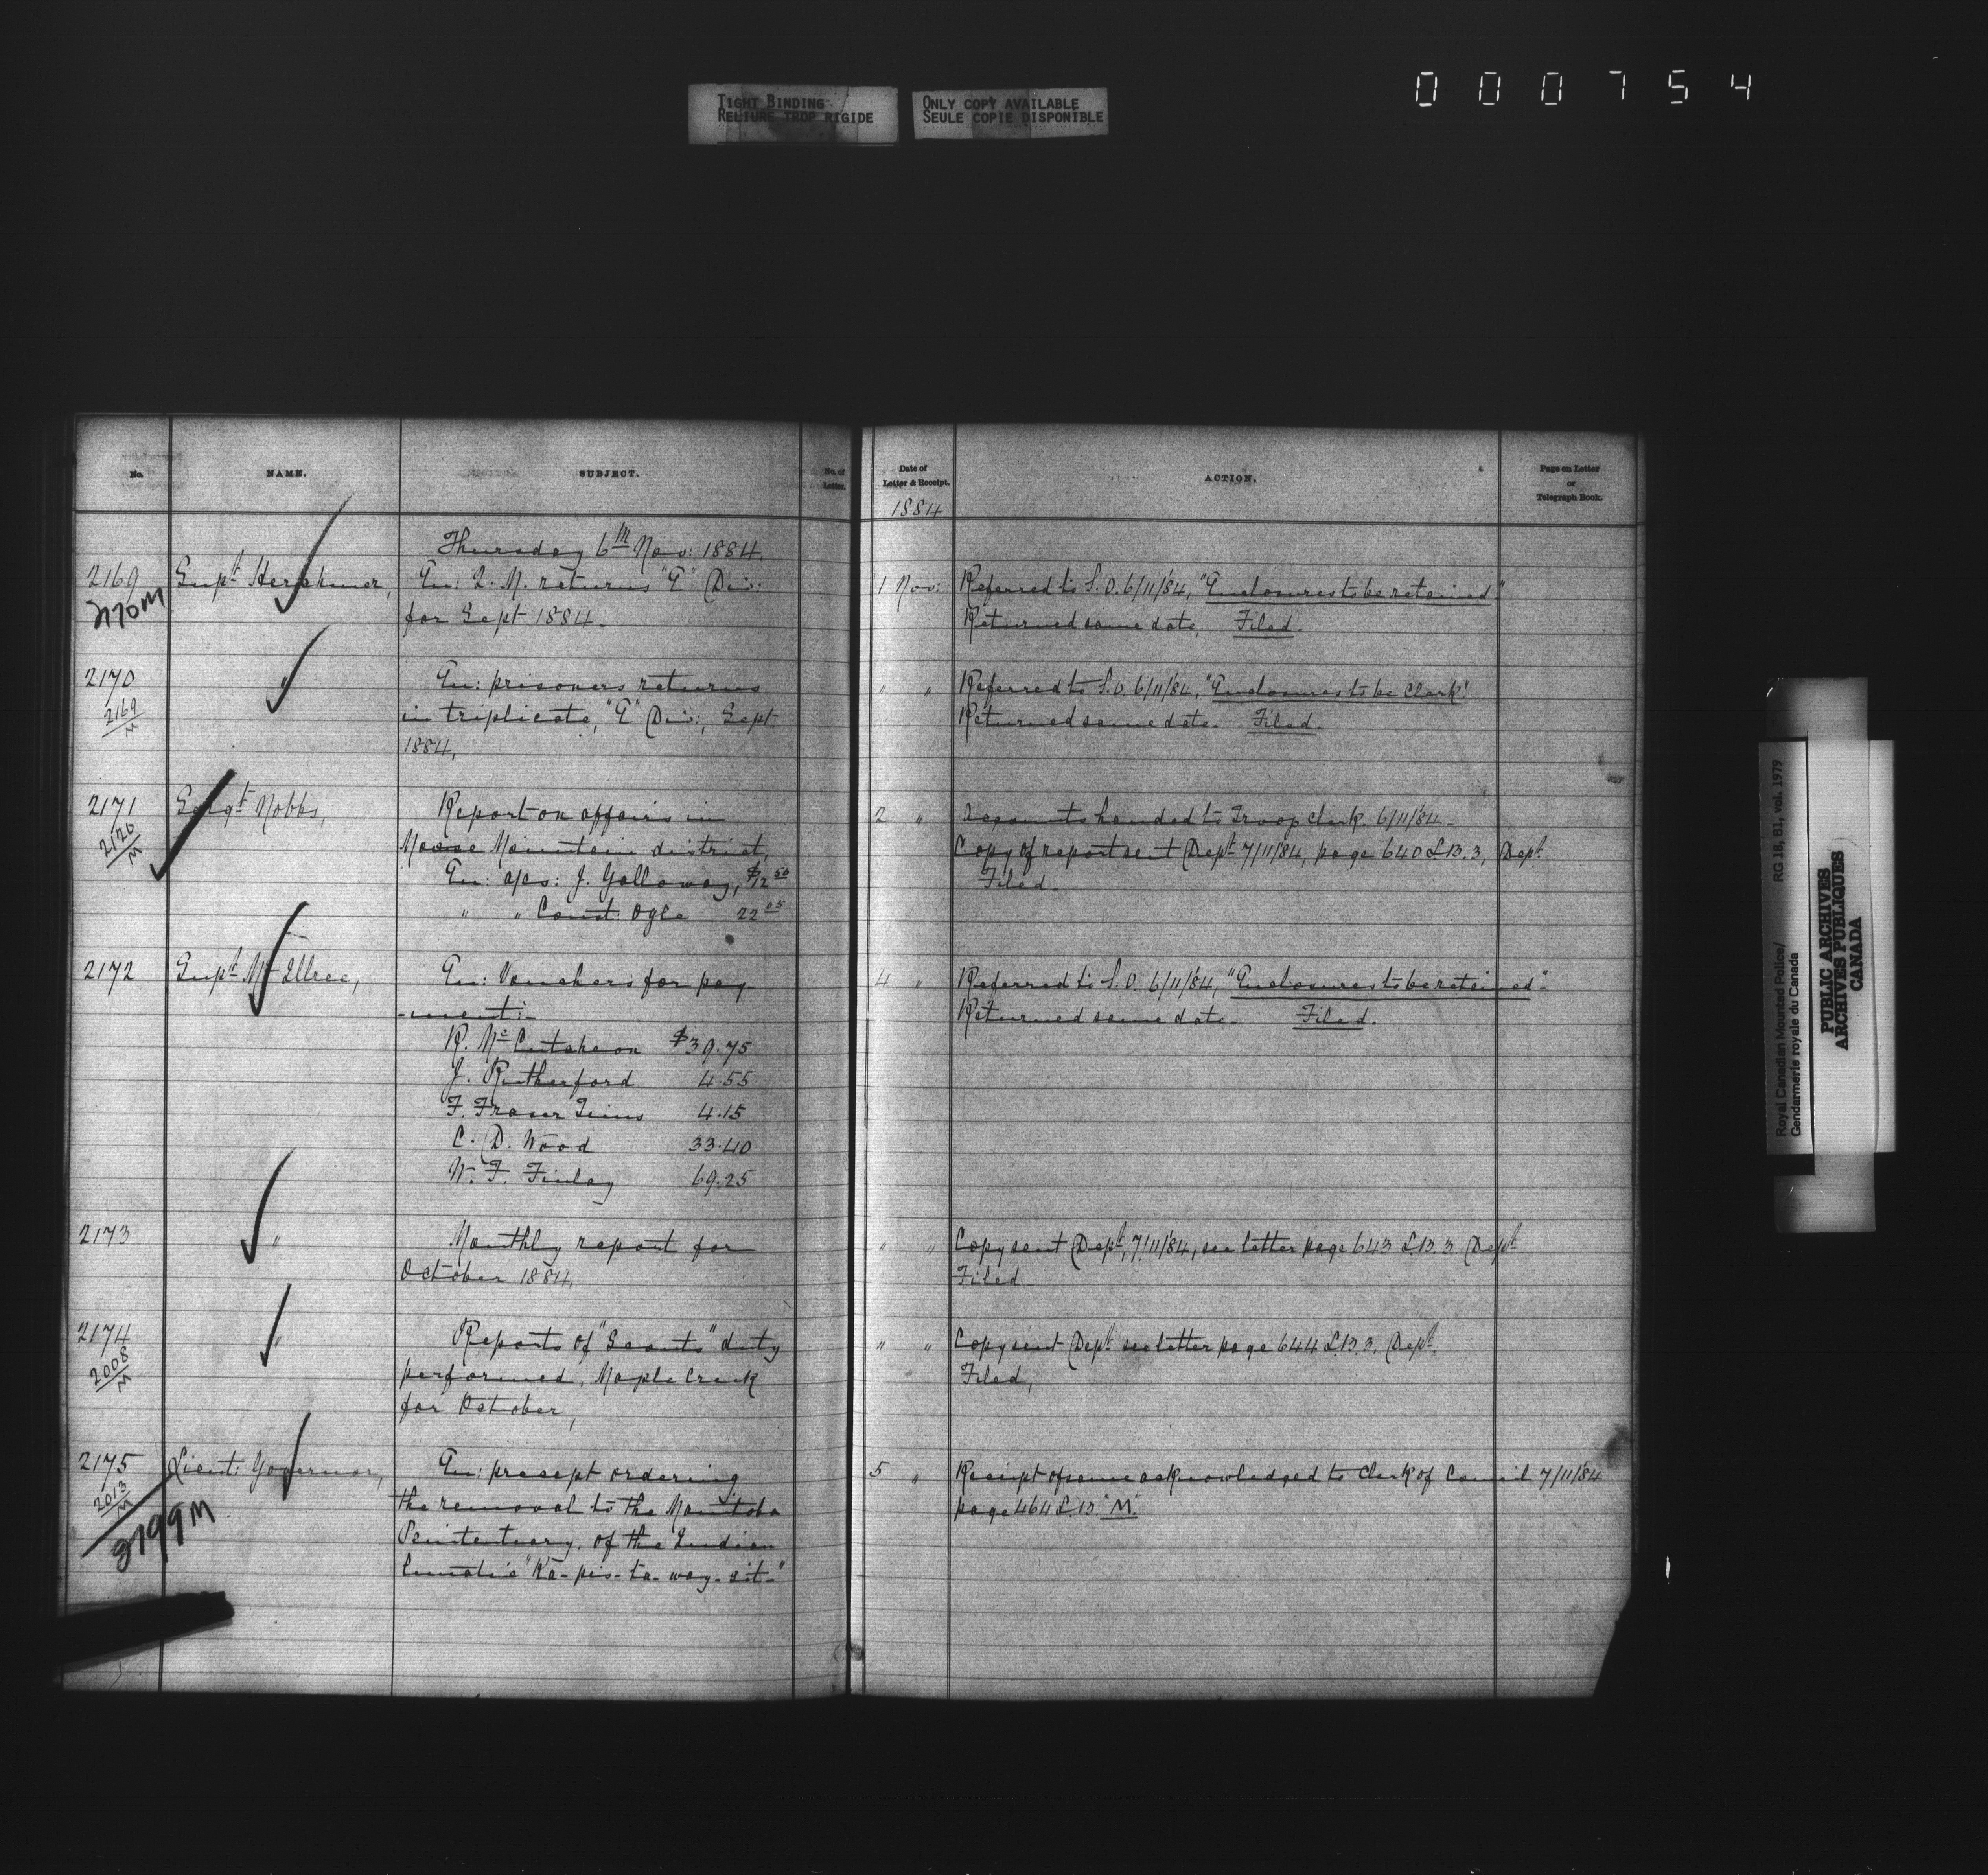 TIGHT BINDING
RELIURE TROP RIGIDE
ONLY COPY AVAILABLE
SEULE COPIE DISPONIBLE
000754
No.
NAME.
SUBJECT.
No. of Letter.
Thursday 6th Nov: 1884.
2169 Supt. Herchmer, En: Q. M. returns "E" Div:
2170M for Sept 1884.
2170 " En: prisoners returns
2169/M in triplicate, "E" Div: Sept
1884,
2171 Sergt. Nobbs, Report on affairs in
2126/M Moose Mountain district,
En: a/cs: J. Galloway, $12 50
" " Const: Ogle 22 05
2172 Supt. McIllree, En: Vouchers for pay
-ment:-
R. McCutcheon $39.75
J. Rutherford 4.55
F. Fraser Tims 4.15
C. D. Wood 33.40
W. F. Finlay 69.25
2173 " Monthly report for
October 1884,
2174 " Reports of "Scouts" duty
2008/M performed, Maple Creek
for October,
2175 Lieut: Governor, En: precept ordering
2013/M the removal to the Manitoba
2799M Penitentuary, of the Indian
Lunatic "Ka-pis-ta-way-sit-"
Date of Letter & Receipt.
ACTION.
Page on Letter or Telegraph Book.
1884
1 Nov: Referred to S.O. 6/11/84, "Enclosures to be retained"
Returned same date, Filed.
" " Referred to S.O. 6/11/84, "Enclosures to be Clerk"
Returned same date. Filed.
2 " Accounts handed to Troop Clerk. 6/11/84.
Copy of report sent Dept. 7/11/84, page 640 L.B. 3, Dept.
Filed.
4 " Referred to S.O. 6/11/84, "Enclosures to be retained".
Returned same date. Filed.
" " Copy sent Dept. 7/11/84, see letter page 643 L.B. 3 Dept
Filed
" " Copy sent Dept. see letter page 644 L.B. 3. Dept.
Filed,
5 " Receipt of same acknowledged to Clerk of Council 7/11/84
page 464 L.B. "M".
Royal Canadian Mounted Police/ RG 18, B1, vol. 1979
Gendarmerie royale du Canada
PUBLIC ARCHIVES
ARCHIVES PUBLIQUES
CANADA